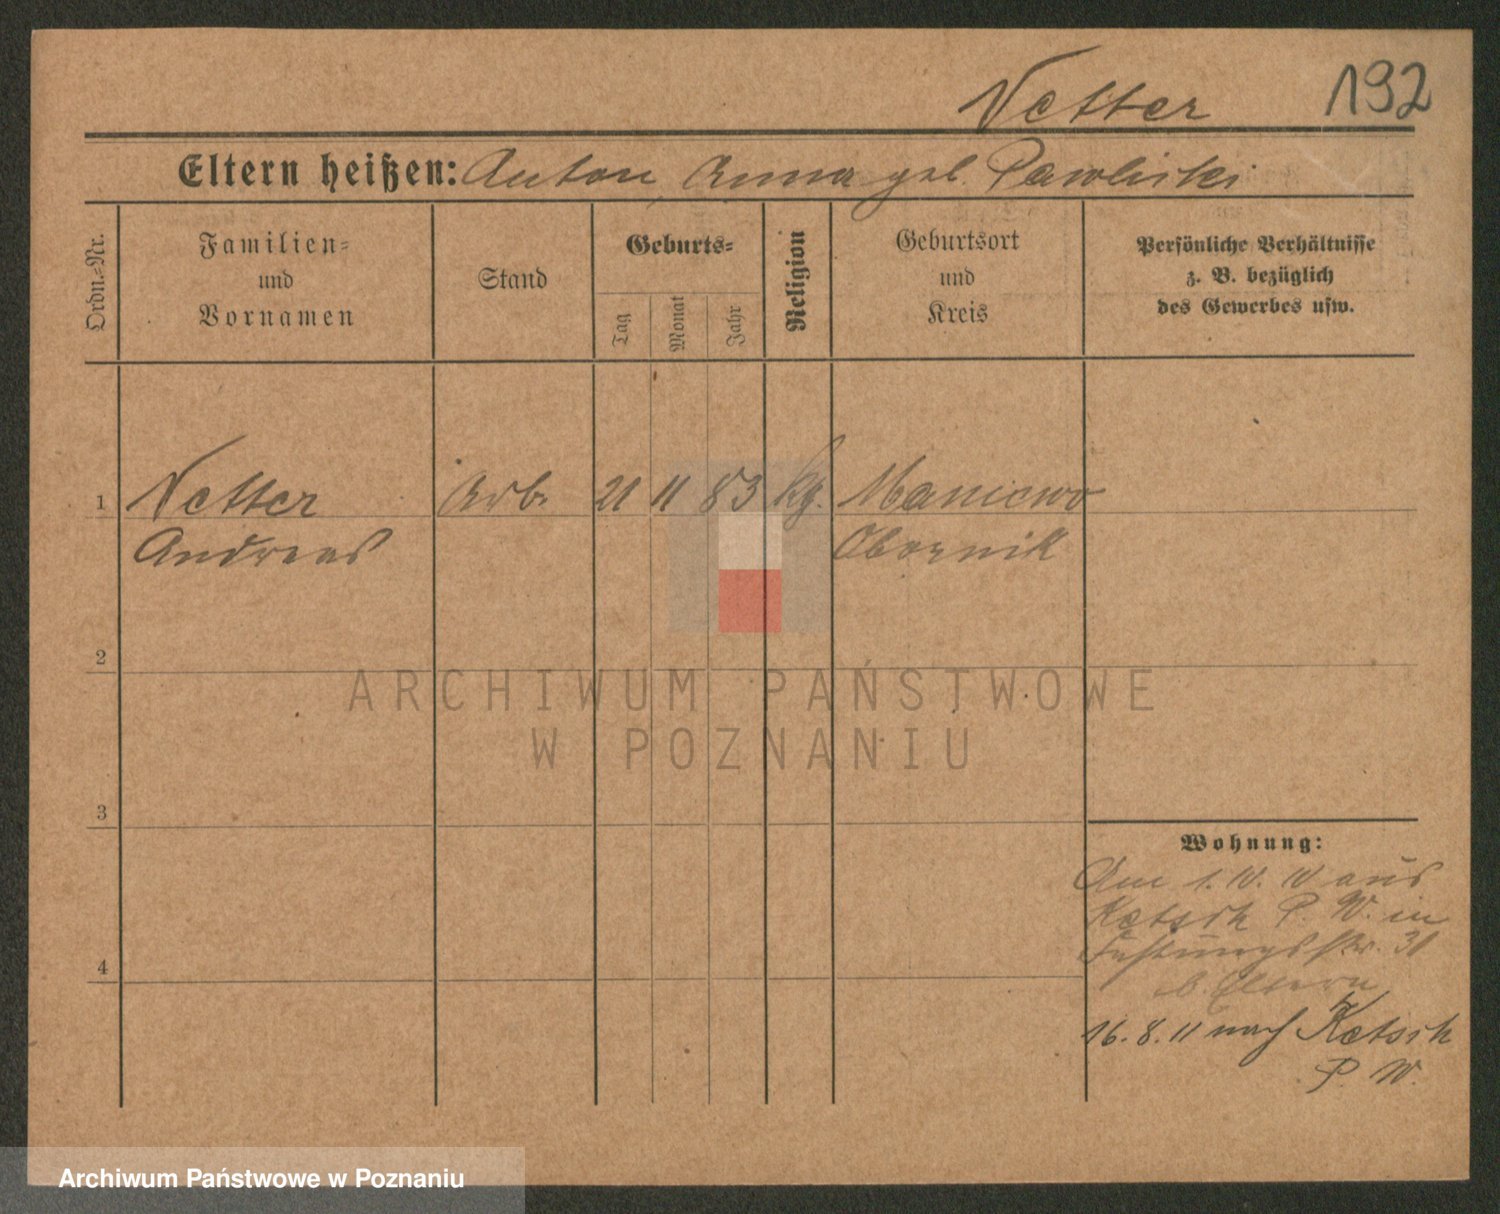 Vetter 192
Eltern heißen: Anton, Anna geb. Pawlitki
Ordn.-Nr.
Familien-
und
Vornamen
Stand
Geburts-
Tag
Monat
Jahr
Religion
Geburtsort
und
Kreis
Persönliche Verhältnisse
z. B. bezüglich
des Gewerbes usw.
1 Vetter Arb. 21 11 83 kg. Maniewo
Andreas Obornik
2
3
4
Wohnung:
Am 1. IV. 10 aus
Ketsch P. W. in
Festungsstr. 31
b. Eltern
16. 8. 11 nach Ketsch
P. W.
ARCHIWUM PAŃSTWOWE
W POZNANIU
Archiwum Państwowe w Poznaniu